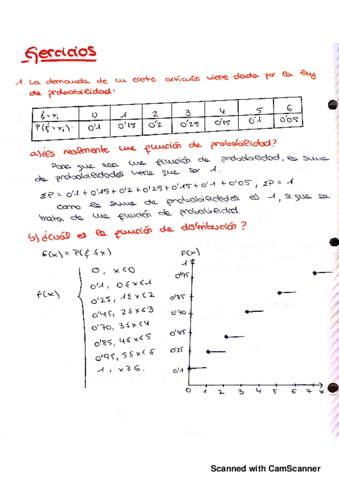 Ejercicios
1. La demanda de un cierto artículo viene dada por la ley
de probabilidad:
ξ=xᵢ 0 1 2 3 4 5 6
P(ξ=xᵢ) 0'1 0'15 0'2 0'25 0'15 0'1 0'05
a) ¿Es realmente una función de probabilidad?
Para que sea una función de probabilidad, la suma
de probabilidades tiene que ser 1.
ΣP = 0'1 + 0'15 + 0'2 + 0'25 + 0'15 + 0'1 + 0'05, ΣP = 1
Como la suma de probabilidades es 1, sí que se
trata de una función de probabilidad.
b) ¿Cuál es la función de distribución?
F(x) = P(ξ ≤ x)
F(x)
0, x<0
0'1, 0≤x<1
0'25, 1≤x<2
0'45, 2≤x<3
0'70, 3≤x<4
0'85, 4≤x<5
0'95, 5≤x<6
1, x≥6.
F(x)
1
0'95
0'85
0'70
0'45
0'25
0'1
0 1 2 3 4 5 6 7 x
Scanned with CamScanner